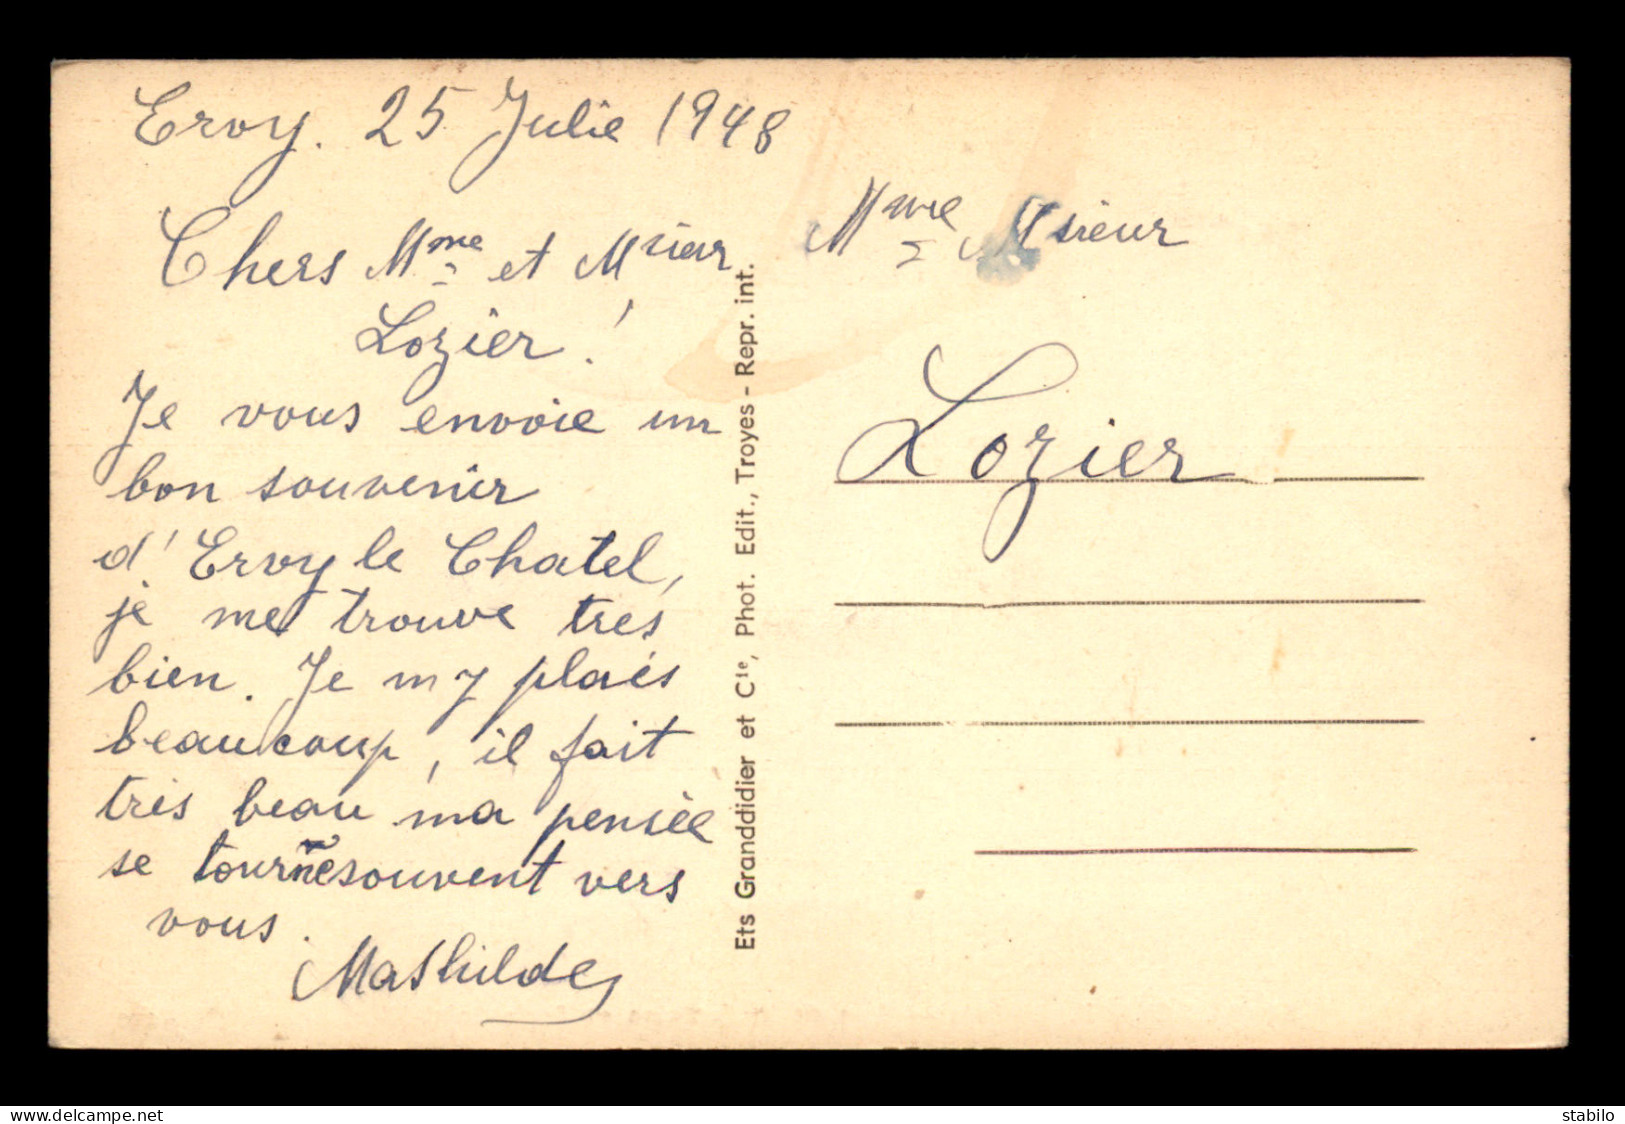 Ervy. 25 Julie 1948
Chers Mme et Msieur
Lozier !
Je vous envoie un
bon souvenir
d'Ervy le Chatel,
je me trouve tres
bien. Je m y plais
beaucoup, il fait
très beau ma pensée
se tourne souvent vers
vous.
Mathilde
Ets Granddidier et Cie, Phot. Edit., Troyes - Repr. int.
Mme Msieur
Lozier
www.delcampe.net
stabilo